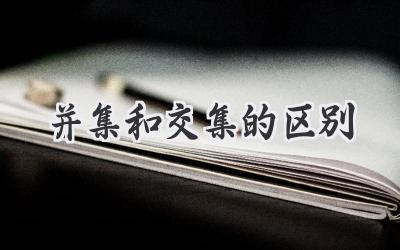 并集和交集的区别